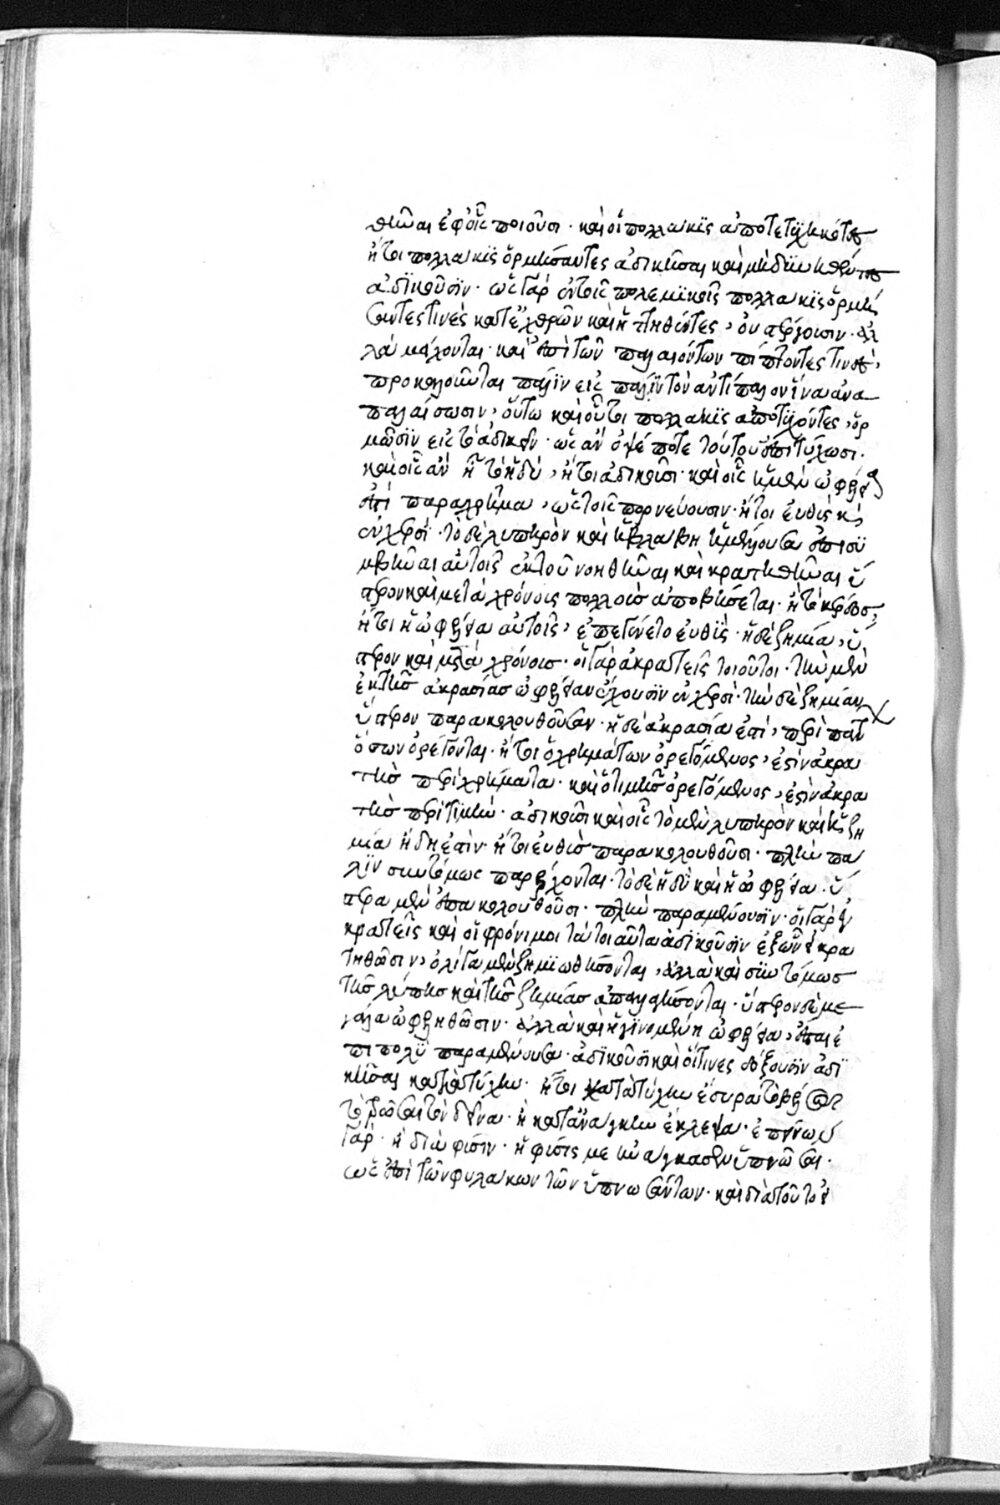 θῆναι ἐφ' οἷς ποιοῦσι· καὶ οἱ πολλάκις ἀποτετυχηκότες
ἤτοι πολλάκις ὁρμήσαντες ἀδικῆσαι καὶ μὴ δυνηθέντες
ἀδικοῦσιν· ὡς γὰρ ἐν τοῖς πολεμικοῖς πολλάκις ὁρμή
σαντές τινες κατ' ἐχθρῶν καὶ ἡττηθέντες, οὐ παρῄσουσιν· ἀλ
λὰ μάχονται· καὶ ἐπὶ τῶν παλαιόντων πίπτοντές τινες,
προκαλοῦνται πάλιν εἰς πάλην τὸν ἀντίπαλον ἵνα ἀνα
παλαίσωσιν, οὕτω καὶ οὗτοι πολλάκις ἀποτυχόντες, ὁρ
μῶσιν εἰς τὸ ἀδικεῖν· ὡς ἂν ὀψέ ποτε τούτου ἐπιτύχωσι·
καὶ οἷς ἂν ᾖ τὸ ἡδύ, ἤτοι ἀδικοῦσι καὶ οἷς ἡ μὲν ὠφέλεια
ἐστὶ παραχρῆμα, ὡς τοῖς πορνεύουσιν· ἤτοι εὐθὺς καὶ
ἐν χερσί· τὸ δὲ λυπηρὸν καὶ ἡ βλάβη ἡ μέλλουσα
συμβῆναι αὐτοῖς ἐκ τοῦ νοηθῆναι καὶ κρατηθῆναι ὕ
στερον καὶ μετὰ χρόνους πολλοὺς ἀποβήσεται· ἢ τὸ κέρδος,
ἤτοι ἡ ὠφέλεια αὐτοῖς, ἐπεγίνετο εὐθύς· ἡ δὲ ζημία, ὕ
στερον καὶ μετὰ χρόνους· οἱ γὰρ ἀκρατεῖς τοιοῦτοι· τὴν μὲν
ἐκ τῆς ἀκρασίας ὠφέλειαν ἔχουσιν ἐν χερσί· τὴν δὲ ζημίαν
ὕστερον παρακολουθοῦσαν· ἡ δὲ ἀκρασία ἐστὶ, περὶ πάντα
ὅσων ὀρέγονται· ἤτοι ὁ χρημάτων ὀρεγόμενος, ἐστὶν ἀκρα
τὴς περὶ χρήματα· καὶ ὁ τιμῆς ὀρεγόμενος, ἐστὶν ἀκρα
τὴς περὶ τιμήν· ἀδικοῦσι καὶ οἷς τὸ μὲν λυπηρὸν καὶ ἡ ζη
μία ἤδη ἐστίν· ἤτοι εὐθὺς παρακολουθοῦσι· πλὴν πά
λιν συντόμως παρέρχονται· τὸ δὲ ἡδὺ καὶ ἡ ὠφέλεια· ὕ
στερα μὲν ἐπακολουθοῦσι· πλὴν παραμένουσιν· οἱ γὰρ ἐγ
κρατεῖς καὶ οἱ φρόνιμοι τὰ τοιαῦτα ἀδικοῦσιν ἐξ ὧν εἰ κρα
τηθῶσιν, ὀλίγα μὲν ζημιωθήσονται, ἀλλὰ καὶ συντόμως
τῆς λύπης καὶ τῆς ζημίας ἀπαλλαγήσονται· ὕστερον δὲ με
γάλα ὠφεληθῶσιν· ἀλλὰ καὶ ἡ γινομένη ὠφέλεια, ἔσται ἐ
πὶ πολὺ παραμένουσα· ἀδικοῦσι καὶ οἵτινες δόξουσιν ἀδι
κῆσαι κατὰ τύχην· ἤτοι κατὰ τύχην ἔσυρα τὸ βέλος
τὸ τρῶσαι τὸν δεῖνα· ἢ κατὰ ἀνάγκην ἔκλεψα· ἐπείνων
γάρ· ἢ διὰ φύσιν· ἡ φύσις με ἠνάγκασεν ὑπνῶσαι·
ὡς ἐπὶ τῶν φυλάκων τῶν ὑπνωσάντων· καὶ διὰ τοῦτο